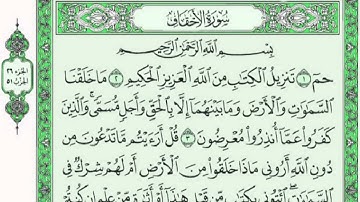 سُورَةُ الأَحْقَافِ
بِسْمِ اللَّهِ الرَّحْمَٰنِ الرَّحِيمِ
حمٓ ١ تَنزِيلُ الْكِتَابِ مِنَ اللَّهِ الْعَزِيزِ الْحَكِيمِ ٢ مَا خَلَقْنَا
السَّمَاوَاتِ وَالْأَرْضَ وَمَا بَيْنَهُمَا إِلَّا بِالْحَقِّ وَأَجَلٍ مُّسَمًّى وَالَّذِينَ
كَفَرُوا عَمَّا أُنذِرُوا مُعْرِضُونَ ٣ قُلْ أَرَأَيْتُم مَّا تَدْعُونَ مِن
دُونِ اللَّهِ أَرُونِي مَاذَا خَلَقُوا مِنَ الْأَرْضِ أَمْ لَهُمْ شِرْكٌ فِي
السَّمَاوَاتِ ائْتُونِي بِكِتَابٍ مِّن قَبْلِ هَٰذَا أَوْ أَثَارَةٍ مِّنْ عِلْمٍ إِن كُنتُمْ
الجزء ٢٦
الحزب ٥١